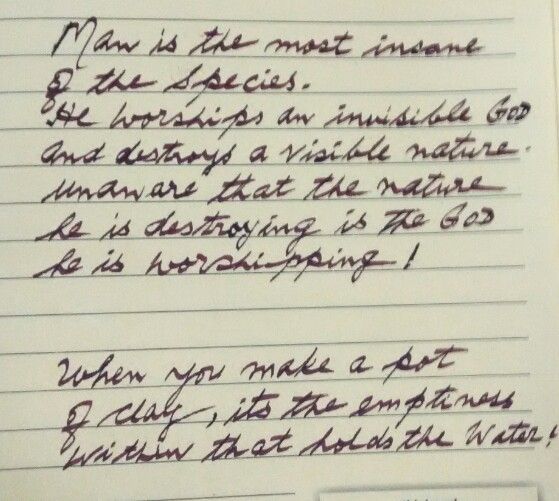 Man is the most insane
of the Species.
He worships an invisible GOD
and destroys a visible nature.
unaware that the nature
he is destroying is the GOD
he is worshipping!
When you make a pot
of clay, its the emptiness
within that holds the Water!